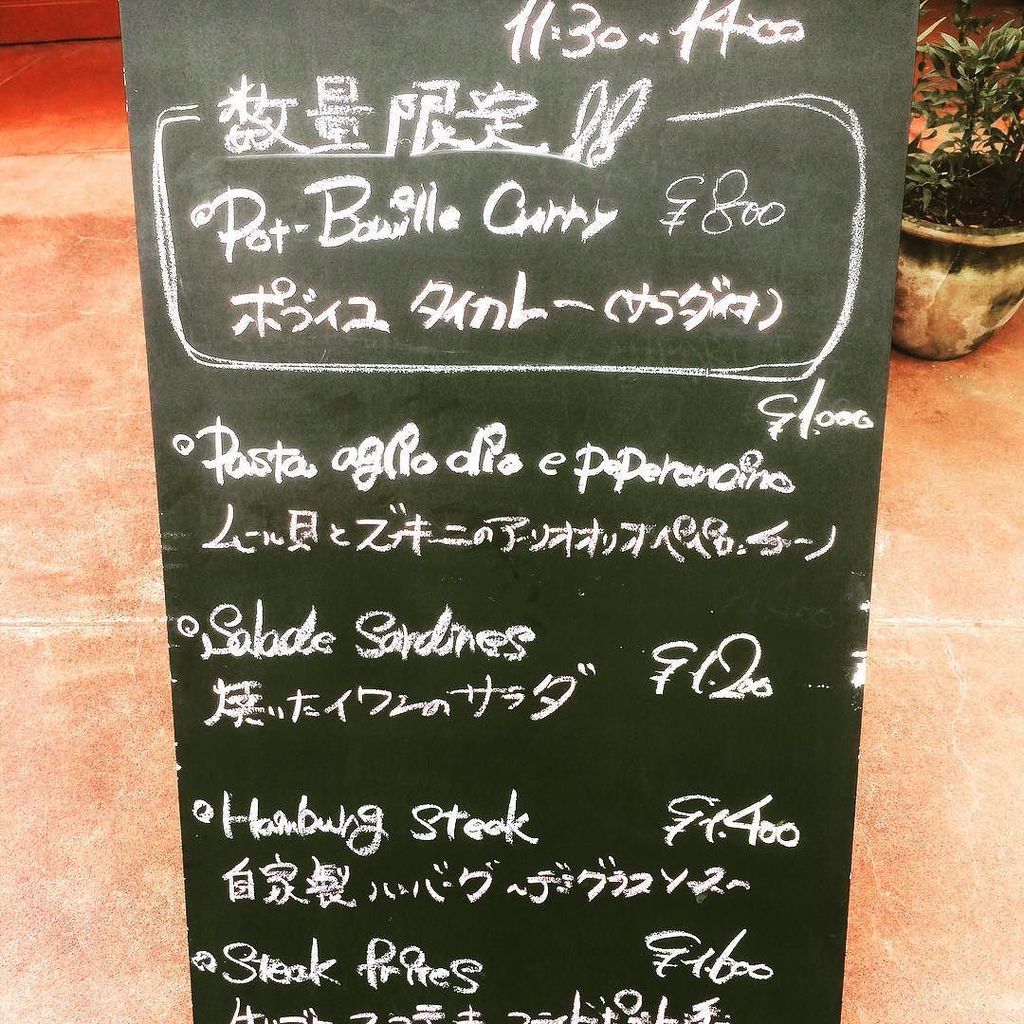 11:30~14:00
数量限定!!
Pot-Bouille Curry ¥800
ポブイユ タイカレー(サラダ付)
¥1.000
Pasta aglio olio e peperoncino
ムール貝とズッキーニのアーリオオーリオペペロンチーノ
Salade Sardines
¥1.200
焼いたイワシのサラダ
Hamburg Steak ¥1.400
自家製ハンバーグ~デミグラスソース~
Steak frites ¥1.600